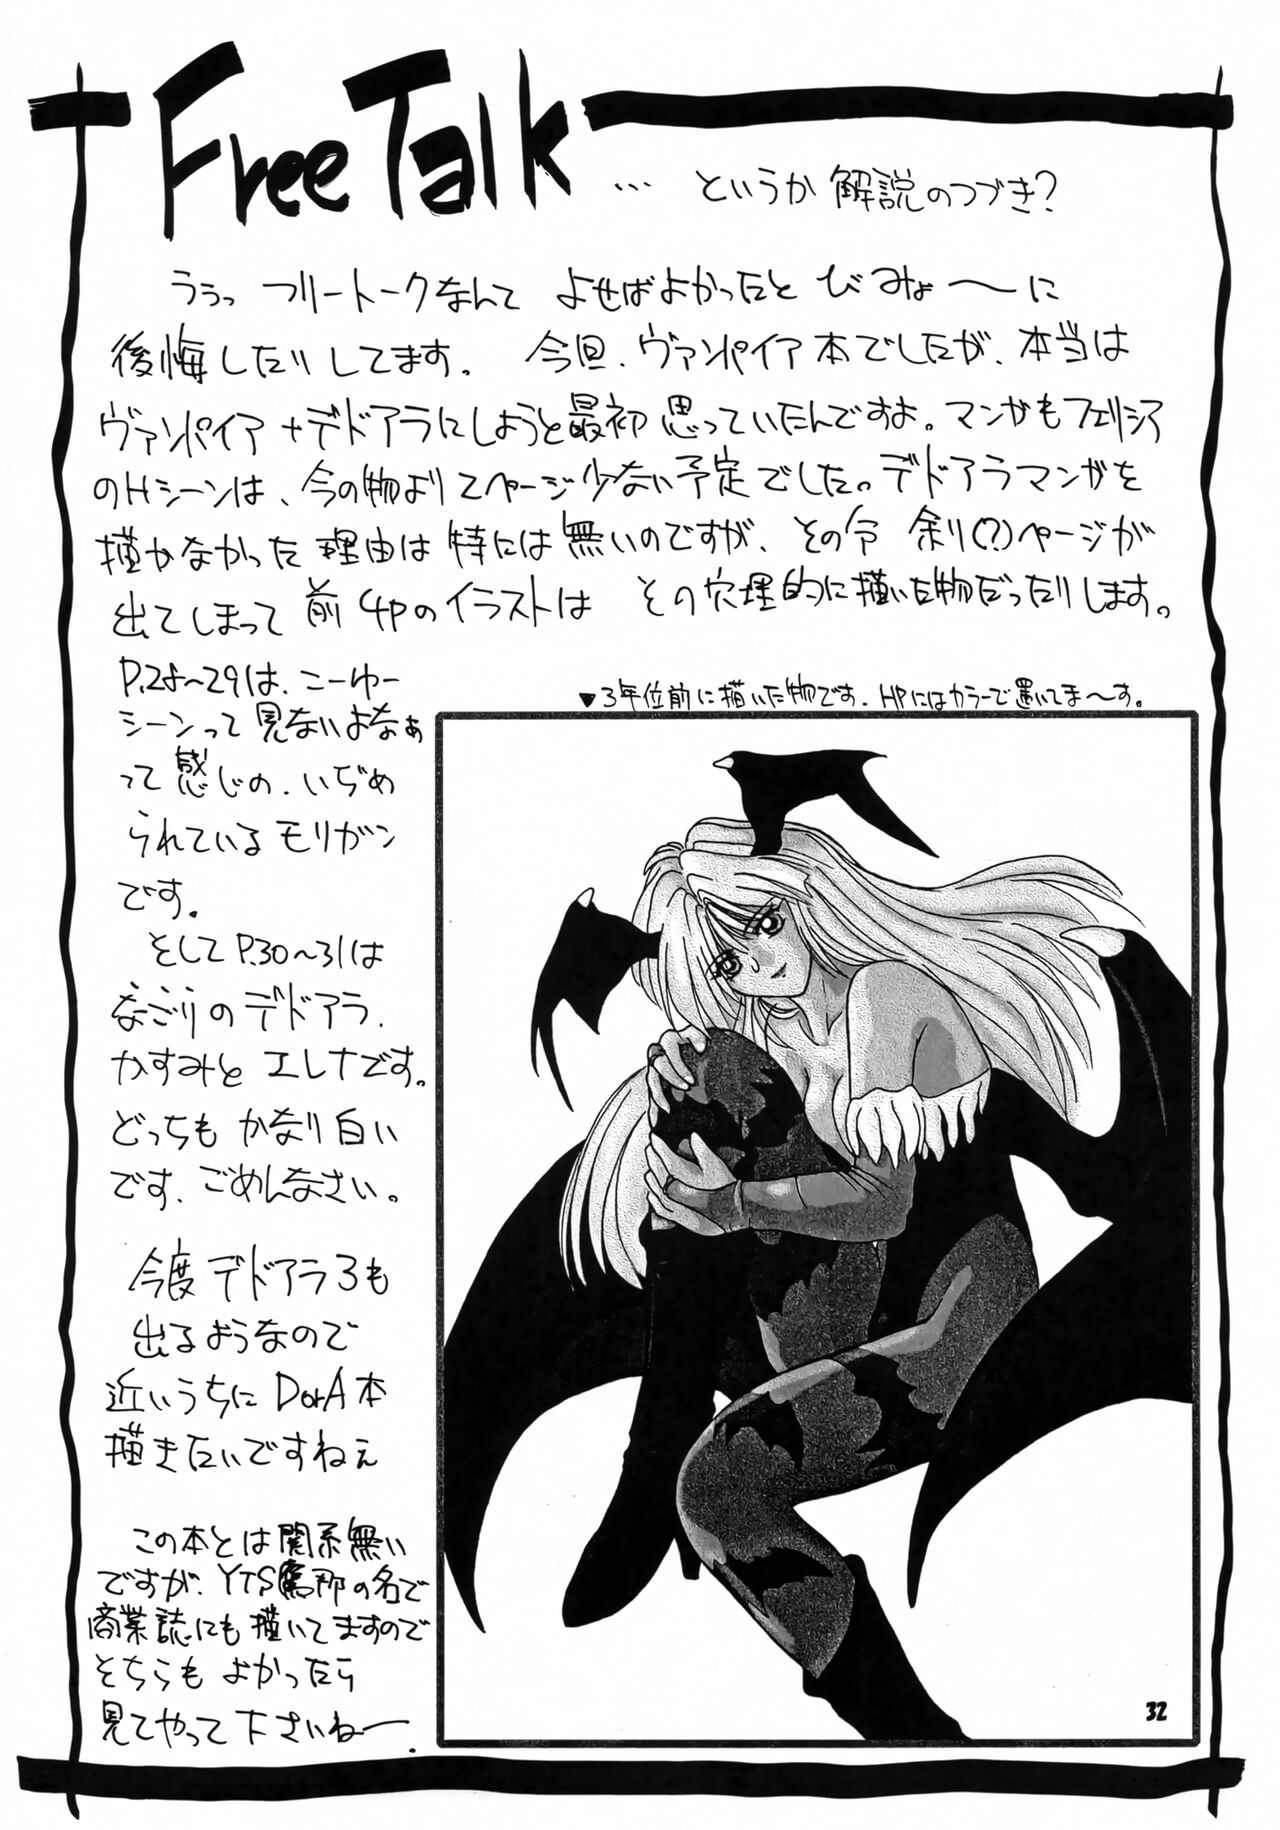 Free Talk
… というか 解説のつづき?
ううっ フリートークなんて よせばよかったと びみょ〜に
後悔したり してます。 今回、ヴァンパイア本でしたが、本当は
ヴァンパイア+デドアラにしようと最初 思っていたんですよ。マンガもフェリシア
のHシーンは、今の物より2ページ少ない予定でした。デドアラマンガを
描かなかった 理由は 特には 無いのですが、その今 余り(?)ページが
出てしまって 前4Pのイラストは その穴埋的に描いた物だったりします。
P.28〜29は、こーゆー
シーンって 見ないよなぁ
って 感じの、いぢめ
られている モリガン
です。
そして P.30〜31は
なごりの デドアラ、
かすみと エレナです。
どっちも かなり 白い
です、ごめんなさい。
今度 デドアラ3も
出るようなので
近いうちに DorA本
描きたいですねぇ
この本とは 関系無い
ですが、YTS 那の名で
商業誌にも 描いてますので
そちらも よかったら
見てやって 下さいねー.
▼3年位前に描いた物です. HPにはカラーで置いてま〜す。
32